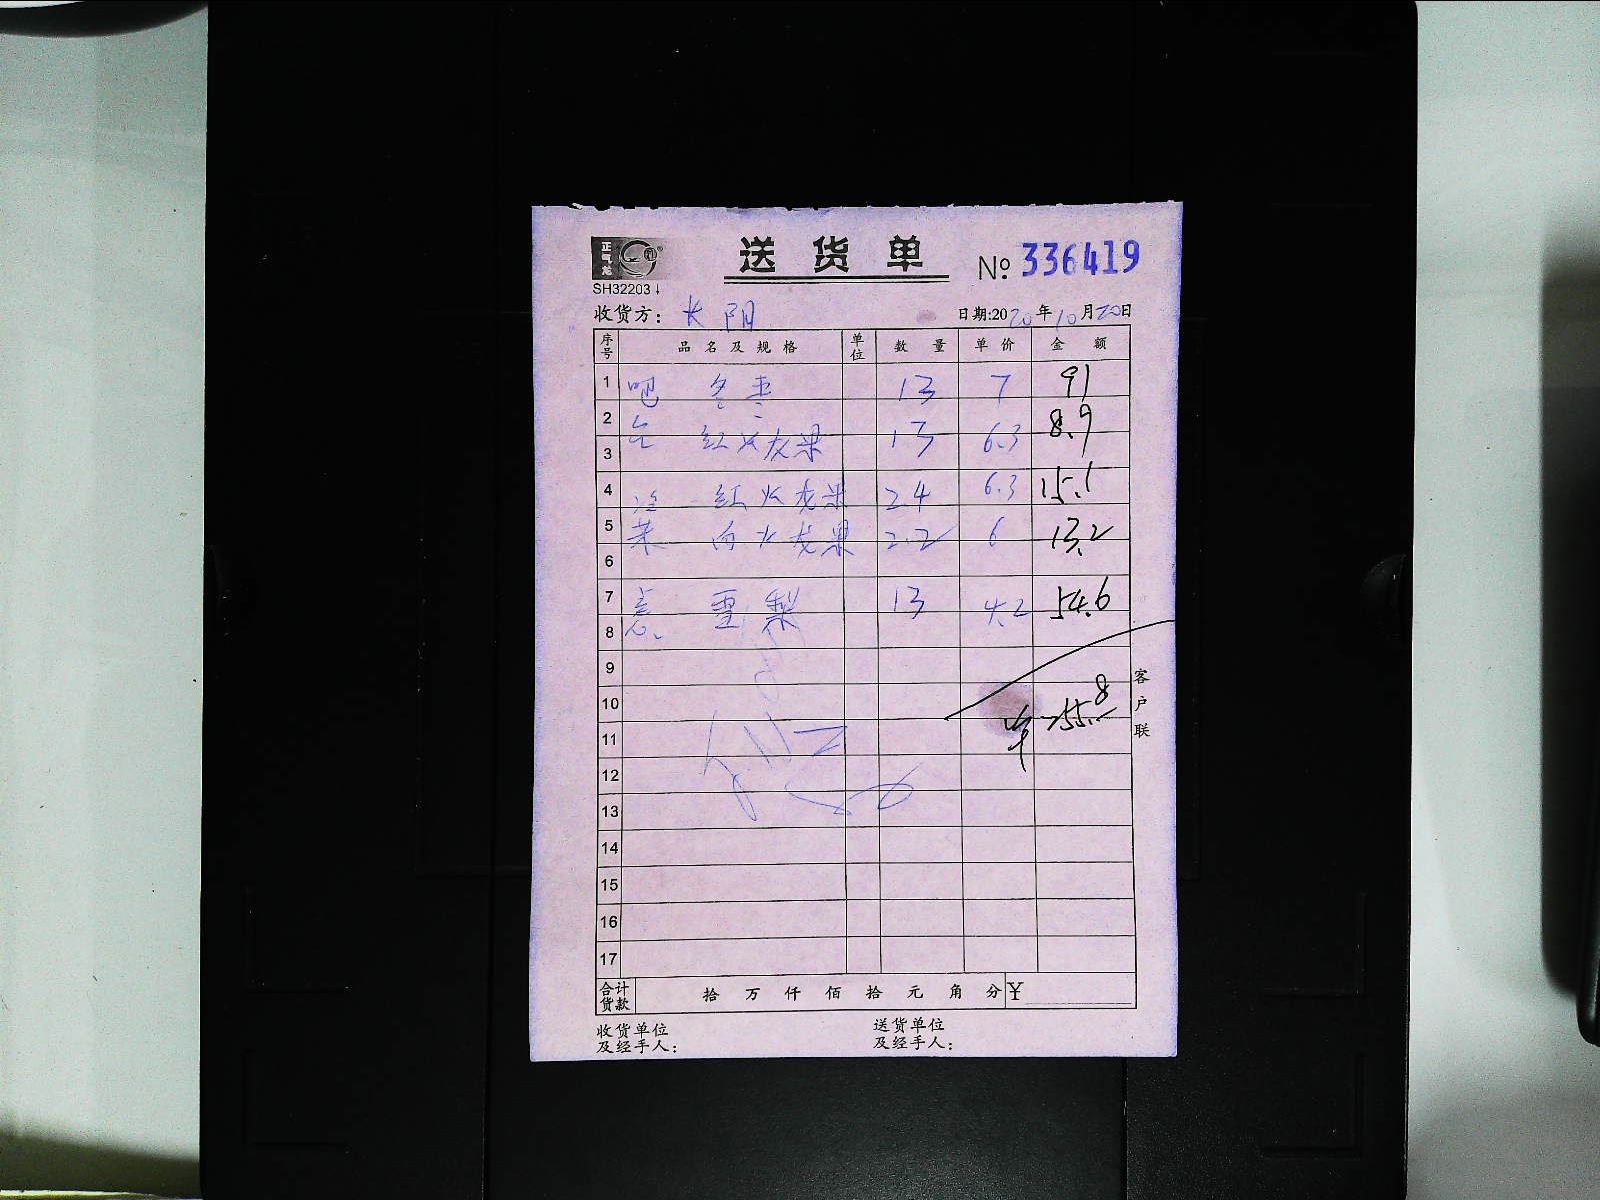 正气龙
送货单
№ 336419
SH32203
收货方： 长阳
日期:2020年10月20日
序号 品名及规格 单位 数量 单价 金额
1 吧 冬枣 13 7 91
2 红火龙果 13 6.3 8.9
3
4 红火龙果 24 6.3 15.1
5 白火龙果 2.2 6 13.2
6
7 雪梨 13 4.2 54.6
8
9
10
11
12
13
14
15
16
17
客户联
合计货款 拾 万 仟 佰 拾 元 角 分 ¥
收货单位及经手人：
送货单位及经手人：